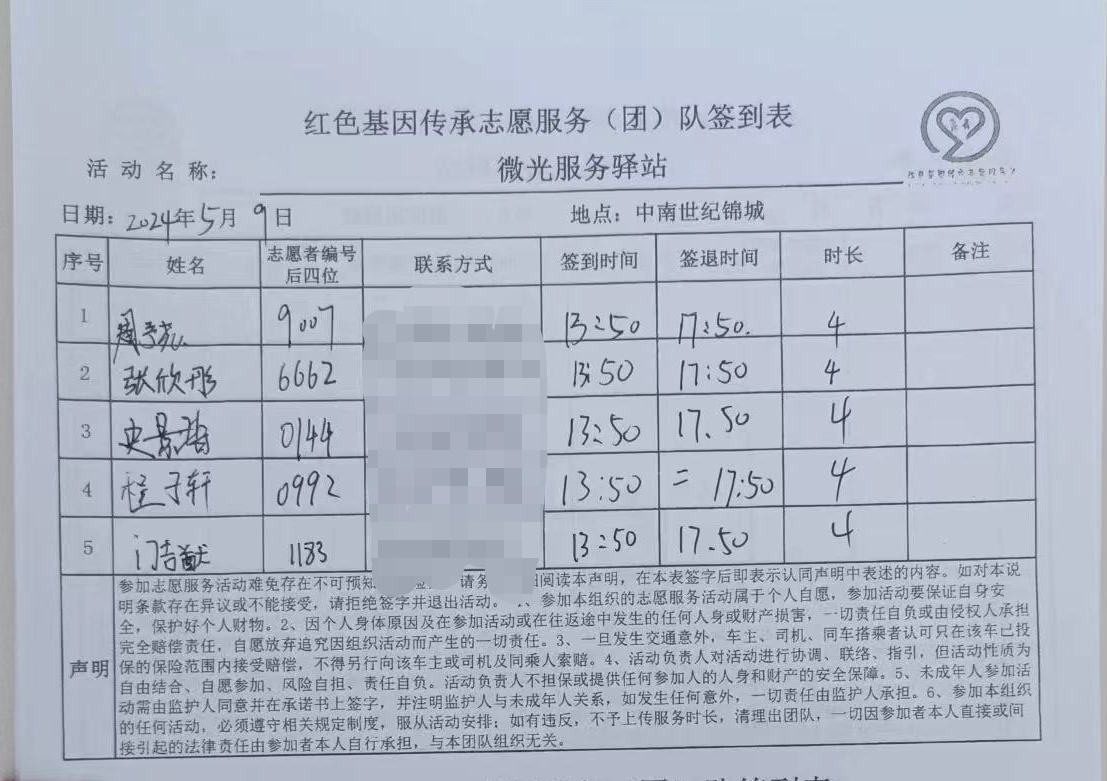 红色基因传承志愿服务（团）队签到表
活动名称： 微光服务驿站
日期：2024年5月9日 地点：中南世纪锦城
序号 姓名 志愿者编号后四位 联系方式 签到时间 签退时间 时长 备注
1 9007 13:50 17:50. 4
2 张欣彤 6662 13:50 17:50 4
3 史景 0144 13:50 17.50 4
4 程子轩 0992 13:50 = 17:50 4
5 门 1183 13:50 17.50 4
声明
参加志愿服务活动难免存在不可预知 请务 阅读本声明，在本表签字后即表示认同声明中表述的内容。如对本说
明条款存在异议或不能接受，请拒绝签字并退出活动。1、参加本组织的志愿服务活动属于个人自愿，参加活动要保证自身安
全，保护好个人财物。2、因个人身体原因及在参加活动或在往返途中发生的任何人身或财产损害，一切责任自负或由侵权人承担
完全赔偿责任，自愿放弃追究因组织活动而产生的一切责任。3、一旦发生交通意外，车主、司机、同车搭乘者认可只在该车已投
保的保险范围内接受赔偿，不得另行向该车主或司机及同乘人索赔。4、活动负责人对活动进行协调、联络、指引，但活动性质为
自由结合、自愿参加、风险自担、责任自负。活动负责人不担保或提供任何参加人的人身和财产的安全保障。5、未成年人参加活
动需由监护人同意并在承诺书上签字，并注明监护人与未成年人关系，如发生任何意外，一切责任由监护人承担。6、参加本组织
的任何活动，必须遵守相关规定制度，服从活动安排；如有违反，不予上传服务时长，清理出团队，一切因参加者本人直接或间
接引起的法律责任由参加者本人自行承担，与本团队组织无关。